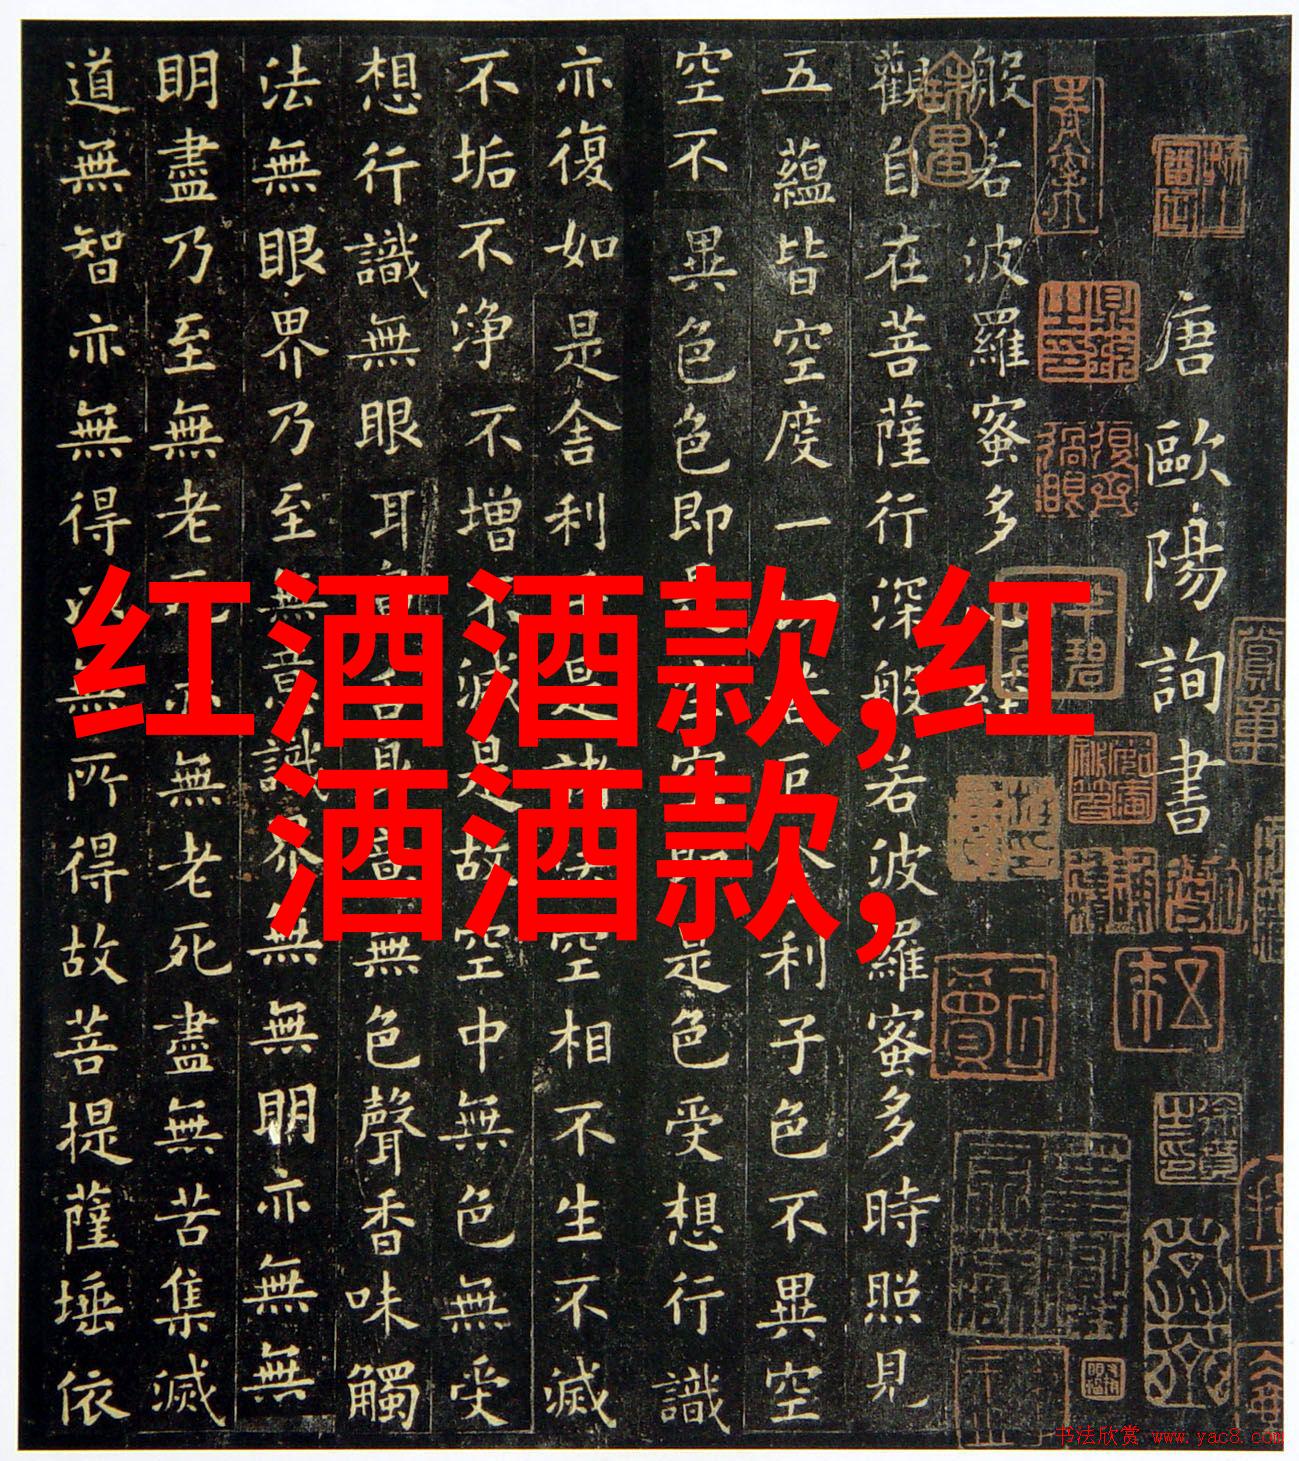 唐歐陽詢書
般若波羅蜜多心經
觀自在菩薩行深般若波羅蜜多時照見
五蘊皆空度一切苦厄舍利子色不異空
空不異色色即是空空即是色受想行識
亦復如是舍利子是諸法空相不生不滅
不垢不淨不增不減是故空中無色無受
想行識無眼耳鼻舌身意無色聲香味觸
法無眼界乃至無意識界無無明亦無無
明盡乃至無老死亦無老死盡無苦集滅
道無智亦無得以無所得故菩提薩埵依
红酒酒款,红
酒酒款,
书法欣赏 www.yac8.com